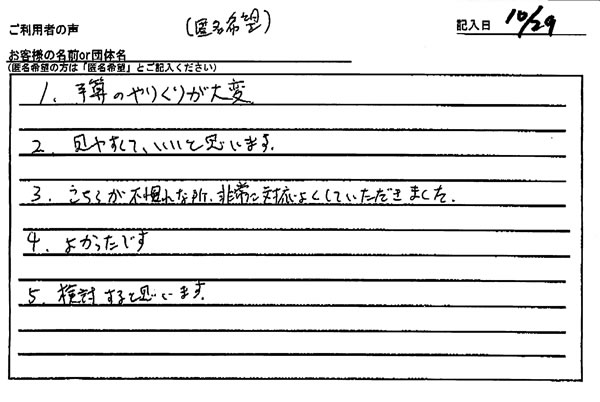 ご利用者の声 (匿名希望) 記入日 10/29
お客様の名前or団体名
(匿名希望の方は「匿名希望」とご記入ください)
1、予算のやりくりが大変
2、見やすくて、いいと思います。
3、こちらが不慣れな所、非常に対応よくしていただきました。
4、よかったです
5、検討すると思います。